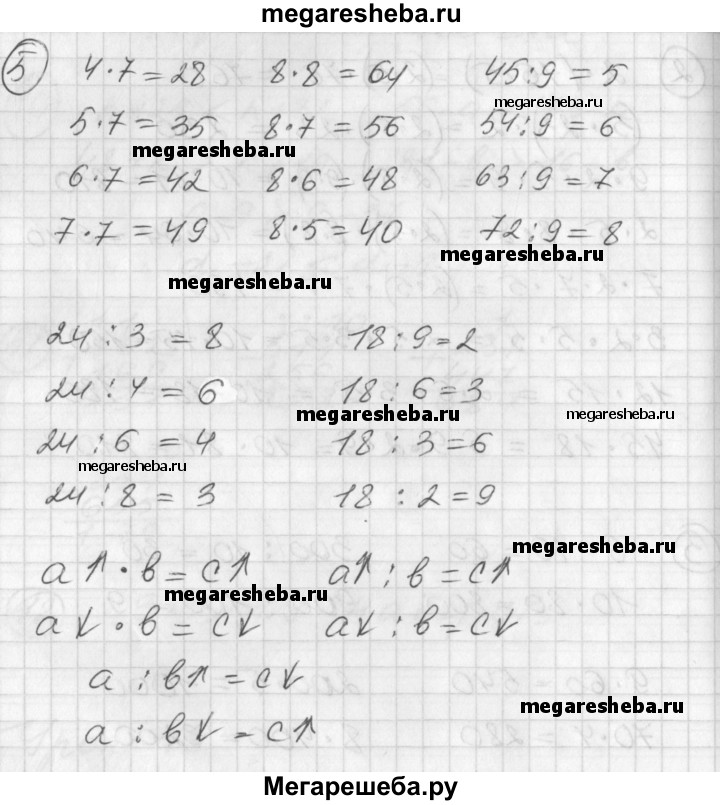 megaresheba.ru
5 4·7=28 8·8=64 45:9=5
megaresheba.ru
5·7=35 8·7=56 54:9=6
megaresheba.ru
6·7=42 8·6=48 63:9=7
7·7=49 8·5=40 72:9=8
megaresheba.ru
megaresheba.ru
24:3=8 18:9=2
24:4=6 18:6=3
megaresheba.ru megaresheba.ru
24:6=4 18:3=6
megaresheba.ru
24:8=3 18:2=9
megaresheba.ru
a↑·b=c↑ a↑:b=c↑
megaresheba.ru
a↓·b=c↓ a↓:b=c↓
a:b↑=c↓
megaresheba.ru
a:b↓=c↑
Мегарешеба.ру